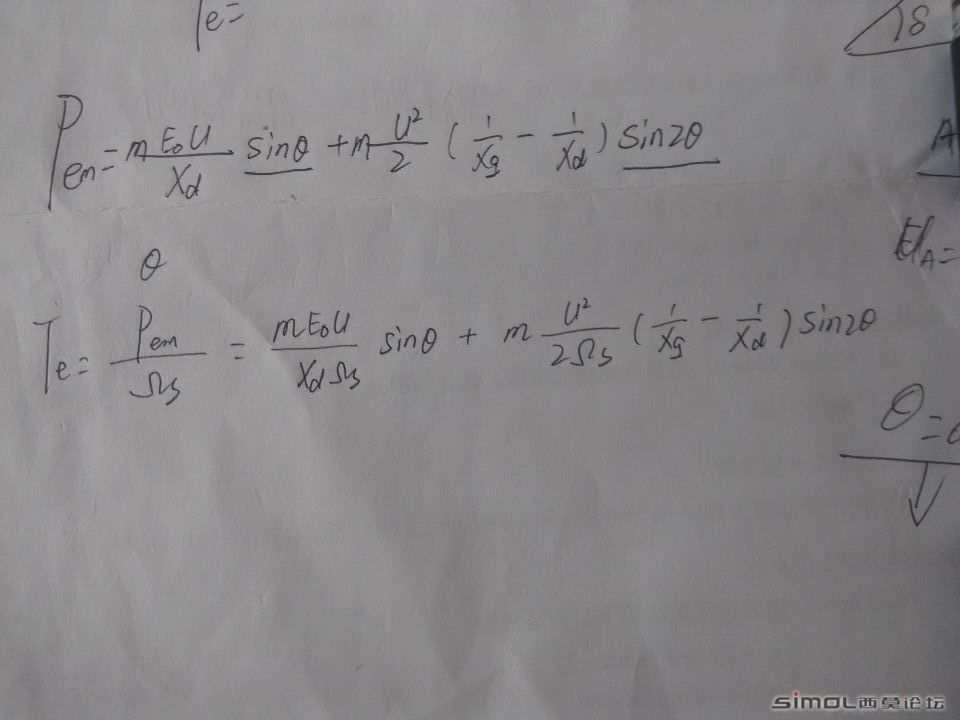 Te=
18
Pem = mE₀U/Xd sinθ + m U²/2 (1/Xq − 1/Xd) sin2θ
A
θ
EA=
Te = Pem/Ωs = mE₀U/XdΩs sinθ + m U²/2Ωs (1/Xq − 1/Xd) sin2θ
θ=
simol西莫论坛